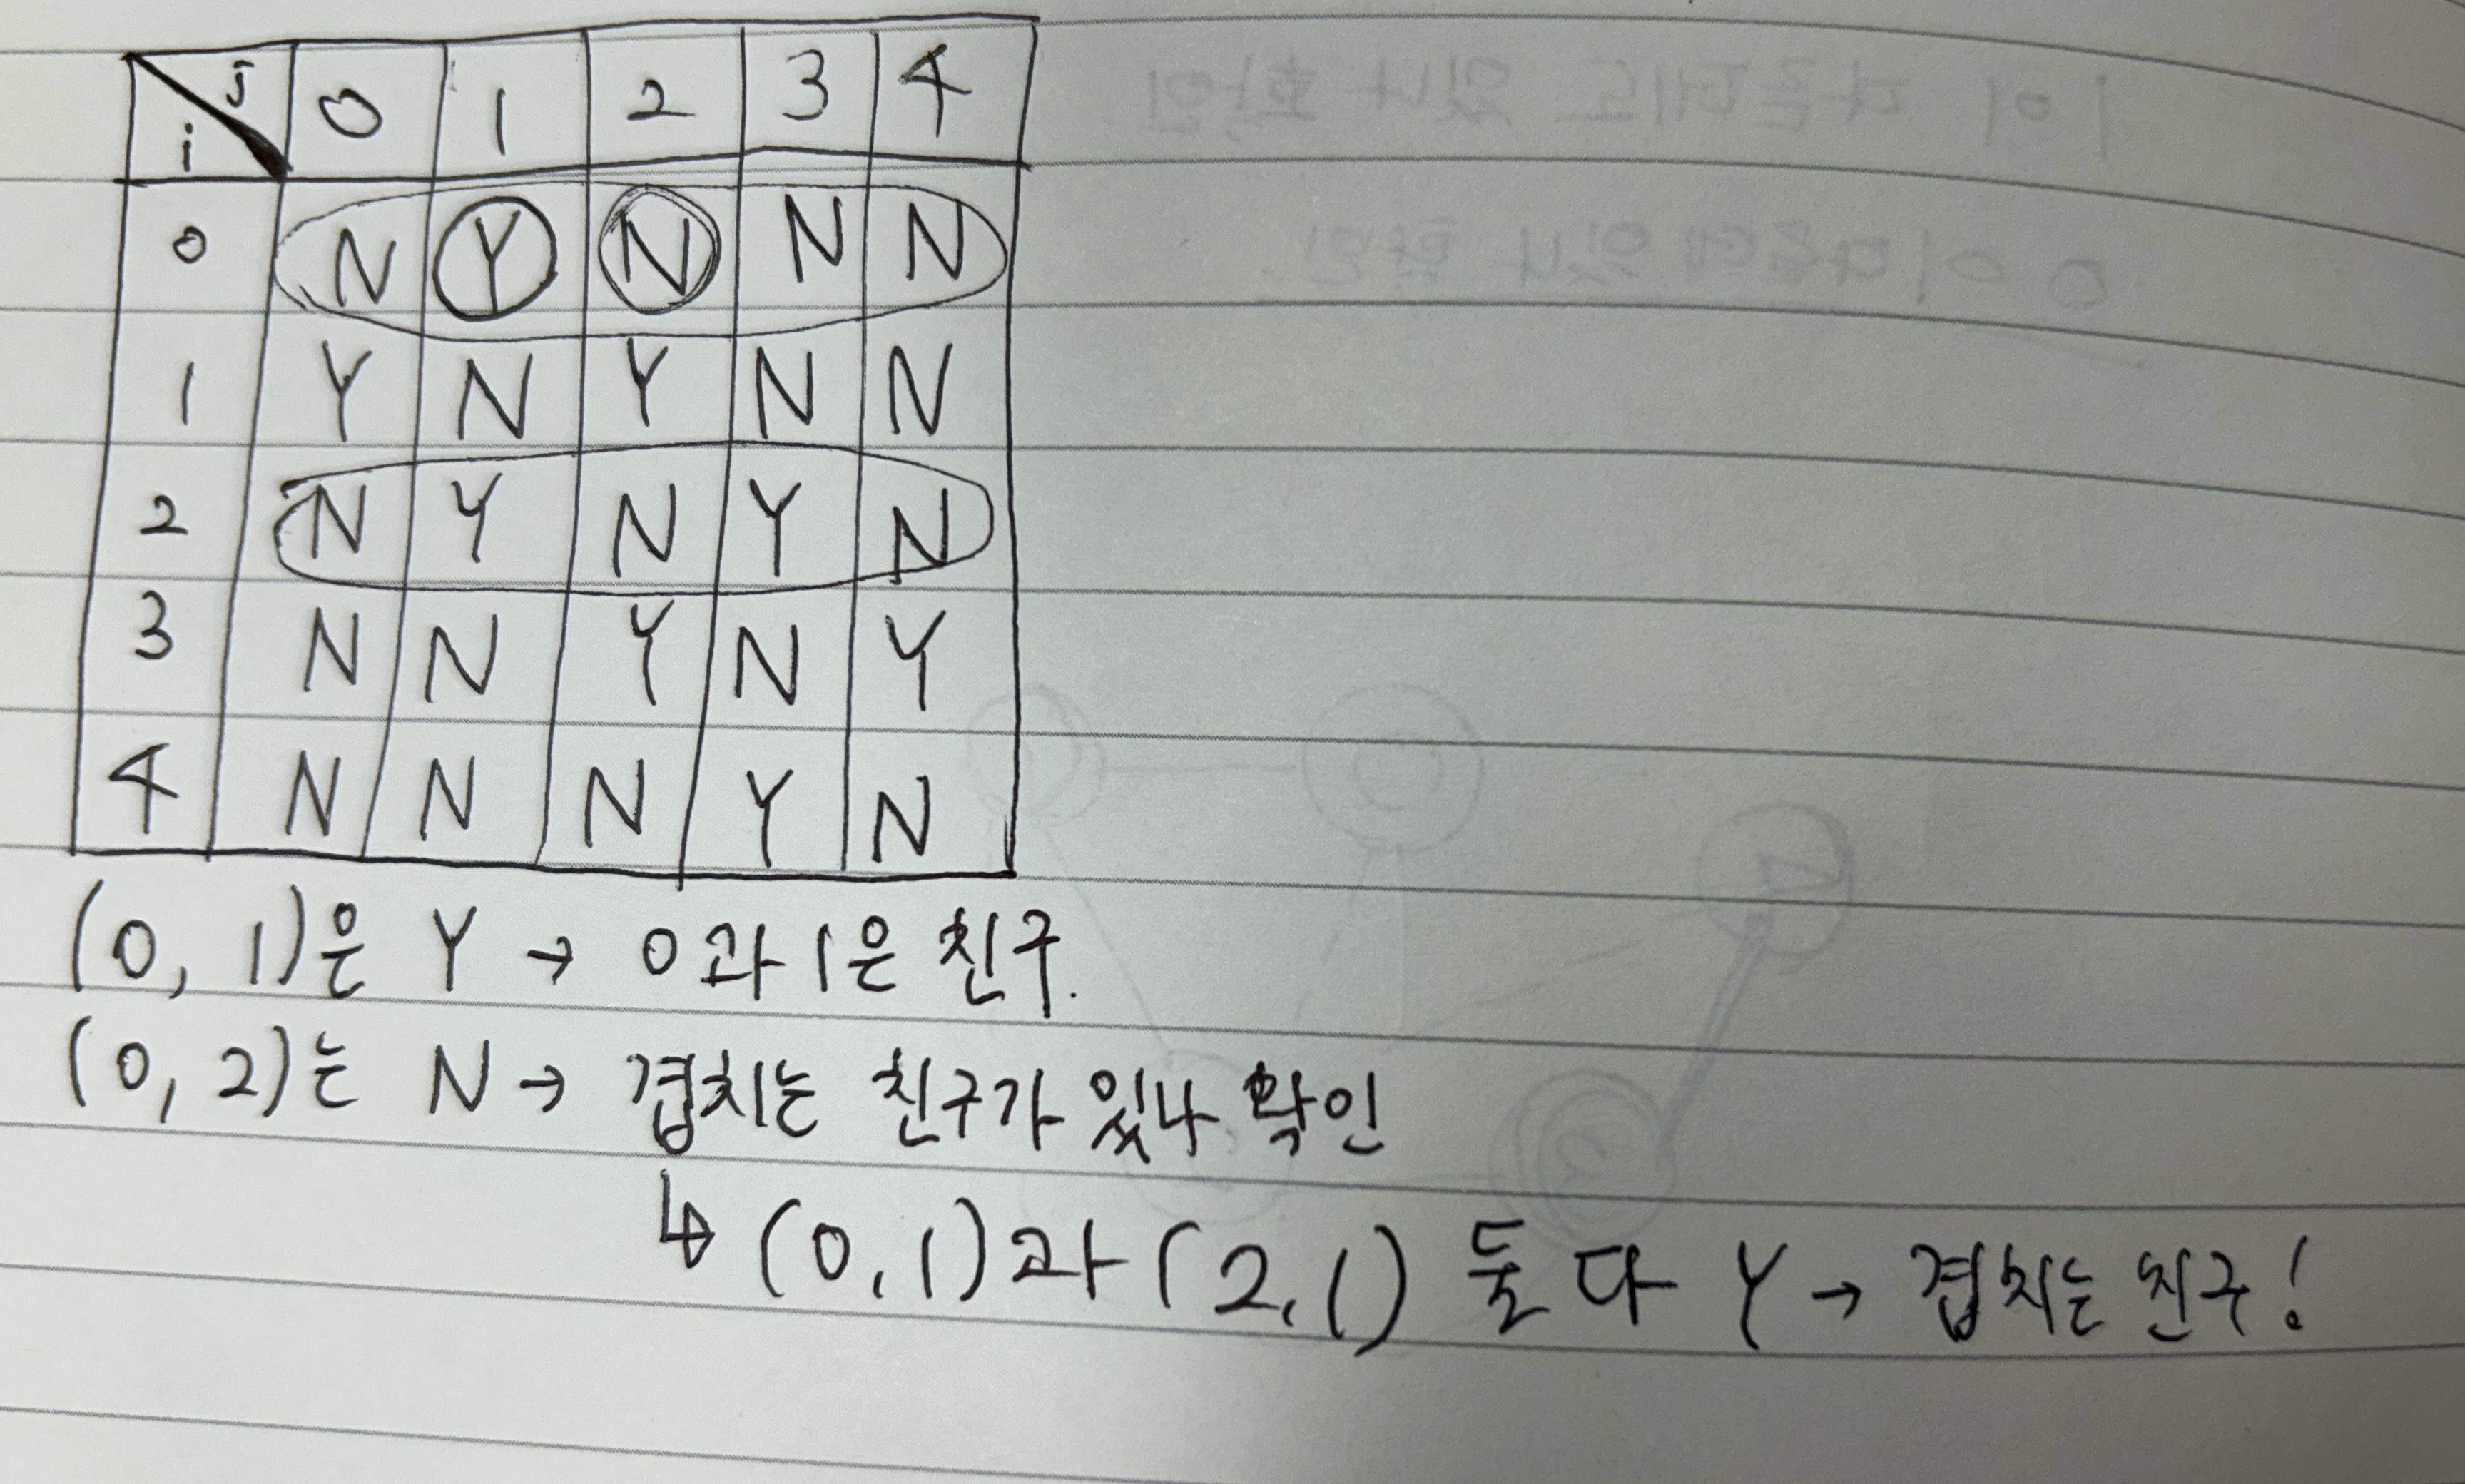 i j 0 1 2 3 4
0 N Y N N N
1 Y N Y N N
2 N Y N Y N
3 N N Y N Y
4 N N N Y N
(0, 1)은 Y → 0과 1은 친구.
(0, 2)는 N → 겹치는 친구가 있나 확인
↳ (0, 1)과 (2, 1) 둘 다 Y → 겹치는 친구!